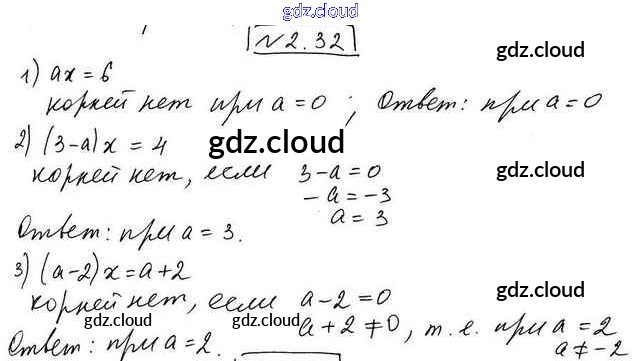 gdz.cloud
№ 2.32
gdz.cloud
1) ax = 6
корней нет при a = 0 ; Ответ: при a = 0
gdz.cloud
2) (3-a)x = 4
gdz.cloud
корней нет, если 3-a = 0
-a = -3
gdz.cloud
a = 3
Ответ: при a = 3.
3) (a-2)x = a+2
gdz.cloud
корней нет, если a-2 = 0
a+2 ≠ 0, т.е. при a = 2
a ≠ -2
Ответ: при a = 2.
gdz.cloud
gdz.cloud
gdz.cloud